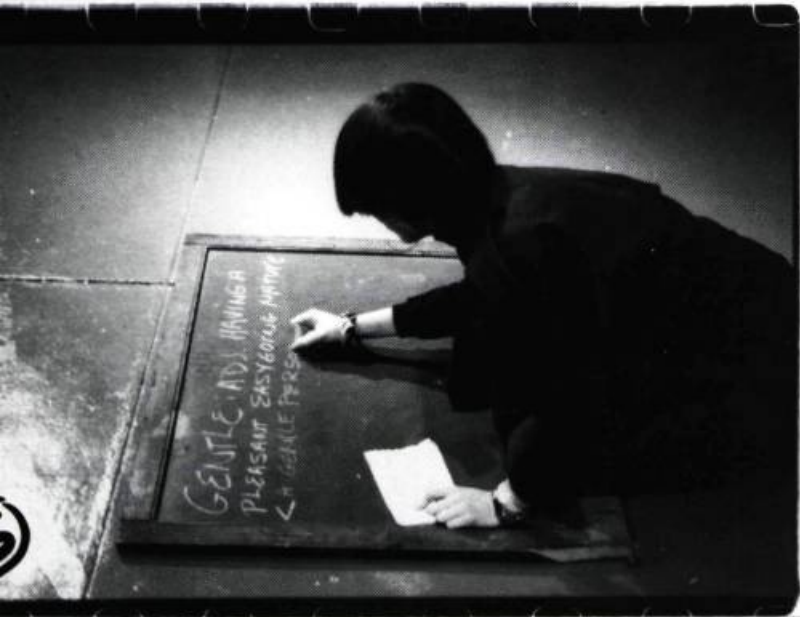 GENTLE: ADJ. HAVING A
PLEASANT EASYGOING NATURE
<A GENTLE PERS